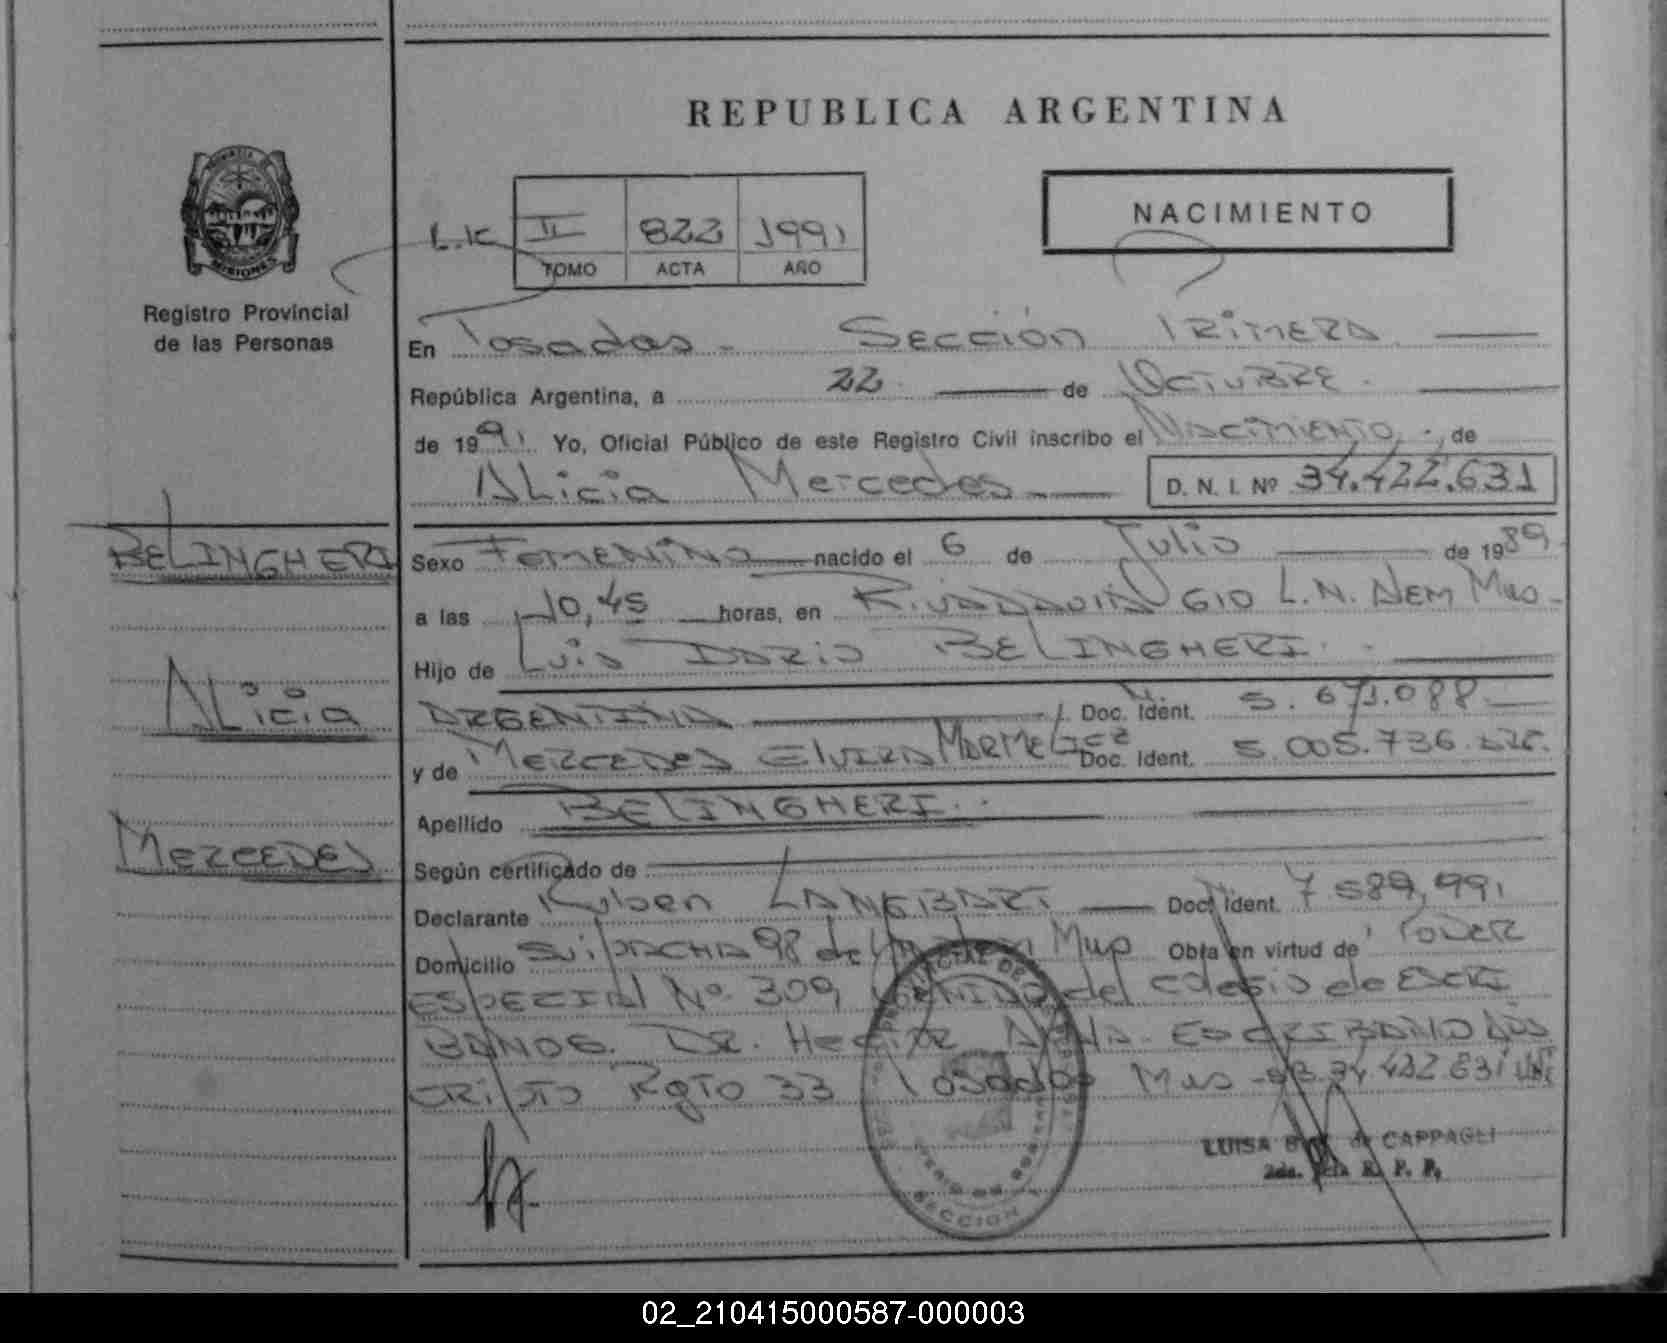 REPUBLICA ARGENTINA
PROVINCIA DE
MISIONES
Registro Provincial
de las Personas
NACIMIENTO
II 822 1991
TOMO ACTA AÑO
En Posadas - Sección Primera
República Argentina, a 22 de Octubre
de 1991 Yo, Oficial Público de este Registro Civil inscribo el Nacimiento de
Alicia Mercedes D. N. I. Nº 34.422.631
BELINGHERI
Alicia
Mercedes
Sexo Femenino nacido el 6 de Julio de 1989
a las 10,45 horas, en Rivadavia 610 L.N. Alem Mnes
Hijo de Luis Dario BELINGHERI
ARGENTINA Doc. Ident. 5.671.088
y de Mercedes Elvira Doc. Ident. 5.005.736
Apellido BELINGHERI
Según certificado de
Declarante Ruben Doc. Ident. 7.589.991
Domicilio Suipacha 98 de Obra en virtud de Poder
Especial Nº 309, del Colegio de Escri
banos. Dr. Hector Escribano Ads
cripto Rgto 33 Posadas Mnes
LUISA de CAPPAGLI
R. P. P.
SECCION
02_210415000587-000003